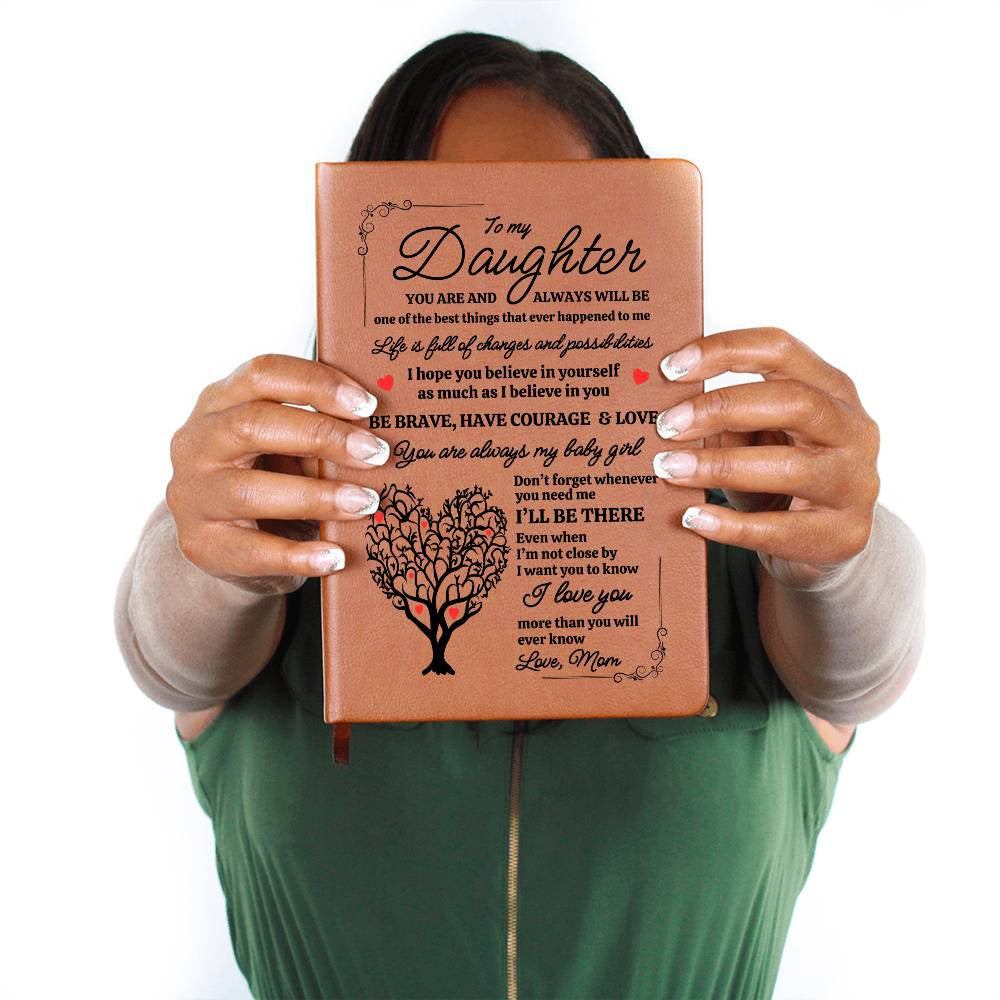 To my
Daughter
YOU ARE AND ALWAYS WILL BE
one of the best things that ever happened to me
Life is full of changes and possibilities
I hope you believe in yourself
as much as I believe in you
BE BRAVE, HAVE COURAGE & LOVE
You are always my baby girl
Don't forget whenever
you need me
I'LL BE THERE
Even when
I'm not close by
I want you to know
I love you
more than you will
ever know
Love, Mom